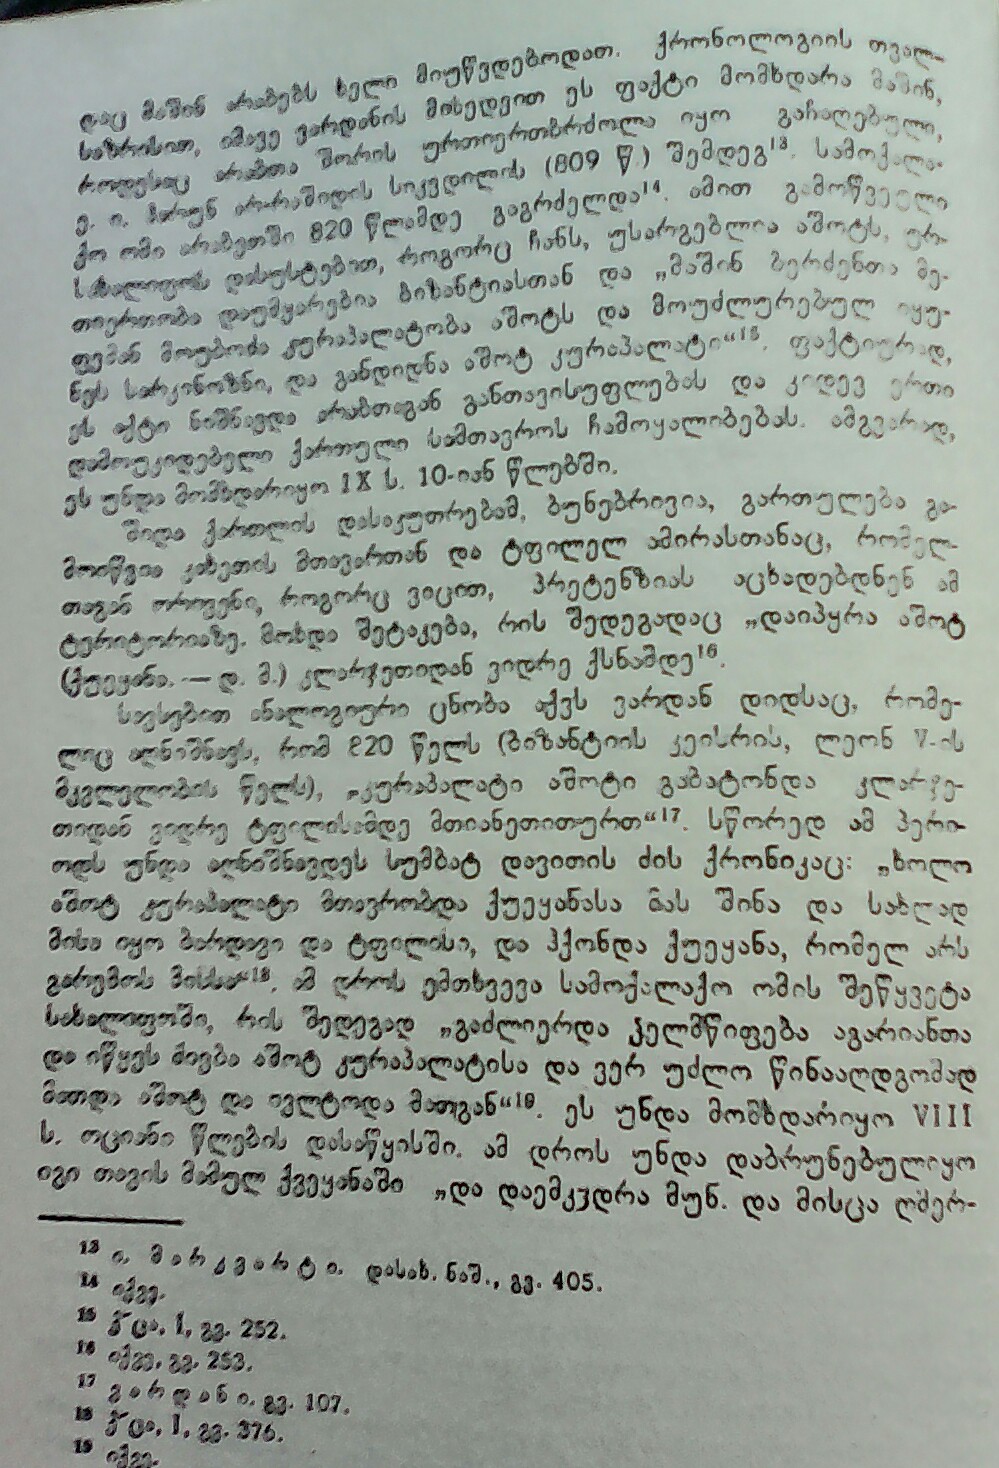 დაც მაშინ არაბებს ხელი მიუწვდებოდათ. ქრონოლოგიის თვალ-
საზრისით, იმავე ვარდანის მიხედვით ეს ფაქტი მომხდარა მაშინ,
როდესაც არაბთა შორის ურთიერთბრძოლა იყო გაჩაღებული,
ე. ი. ჰარუნ არ-რაშიდის სიკვდილის (809 წ.) შემდეგ¹³. სამოქალა-
ქო ომი არაბეთში 820 წლამდე გაგრძელდა¹⁴. ამით გამოწვეული
სახალიფოს დასუსტებით, როგორც ჩანს, უსარგებლია აშოტს, ურ-
თიერთობა დაუმყარებია ბიზანტიასთან და „მაშინ ბერძენთა მე-
ფემან მოუბოძა კურაპალატობა აშოტს და მოუძლურებულ იყუ-
ნეს სარკინოზნი, და განდიდნა აშოტ კურაპალატი“¹⁵. ფაქტიურად,
ეს აქტი ნიშნავდა არაბთაგან განთავისუფლებას და კიდევ ერთი
დამოუკიდებელი ქართული სამთავროს ჩამოყალიბებას. ამგვარად,
ეს უნდა მომხდარიყო IX ს. 10-იან წლებში.
შიდა ქართლის დასაკუთრებამ, ბუნებრივია, გართულება გა-
მოიწვია კახეთის მთავართან და ტფილელ ამირასთანაც, რომელ-
თაგან ორივენი, როგორც ვიცით, პრეტენზიას აცხადებდნენ ამ
ტერიტორიაზე. მოხდა შეტაკება, რის შედეგადაც „დაიპყრა აშოტ
(ქუეყანა. — დ. მ.) კლარჯეთიდან ვიდრე ქსნამდე¹⁶.
სავსებით ანალოგიური ცნობა აქვს ვარდან დიდსაც, რომე-
ლიც აღნიშნავს, რომ 820 წელს (ბიზანტიის კეისრის, ლეონ V-ის
მკვლელობის წელს), „კურაპალატი აშოტი გაბატონდა კლარჯე-
თიდან ვიდრე ტფილისამდე მთიანეთითურთ“¹⁷. სწორედ ამ პერი-
ოდს უნდა აღნიშნავდეს სუმბატ დავითის ძის ქრონიკაც: „ხოლო
აშოტ კურაპალატი მთავრობდა ქუეყანასა მას შინა და სახლად
მისა იყო ბარდავი და ტფილისი, და ჰქონდა ქუეყანა, რომელ არს
გარემოს მისსა“¹⁸. ამ დროს ემთხვევა სამოქალაქო ომის შეწყვეტა
სახალიფოში, რის შედეგად „გაძლიერდა ჴელმწიფება აგარიანთა
და იწყეს ძიება აშოტ კურაპალატისა და ვერ უძლო წინააღდგომად
მათდა აშოტ და ივლტოდა მათგან“¹⁹. ეს უნდა მომხდარიყო VIII
ს. ოციანი წლების დასაწყისში. ამ დროს უნდა დაბრუნებულიყო
იგი თავის მამულ ქვეყანაში „და დაემკჳდრა მუნ. და მისცა ღმერ-
¹³ ი. მარკვარტი. დასახ. ნაშ., გვ. 405.
¹⁴ იქვე.
¹⁵ ქ̃ცა, I, გვ. 252.
¹⁶ იქვე, გვ. 253.
¹⁷ ვარდანი. გვ. 107.
¹⁸ ქ̃ცა, I, გვ. 376.
¹⁹ იქვე.